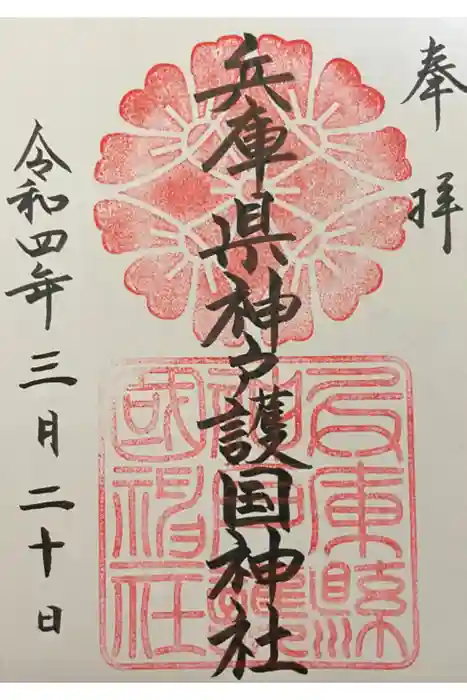 奉拝
兵庫県神戸護国神社
兵庫縣
神戸護
國神社
令和四年三月二十日